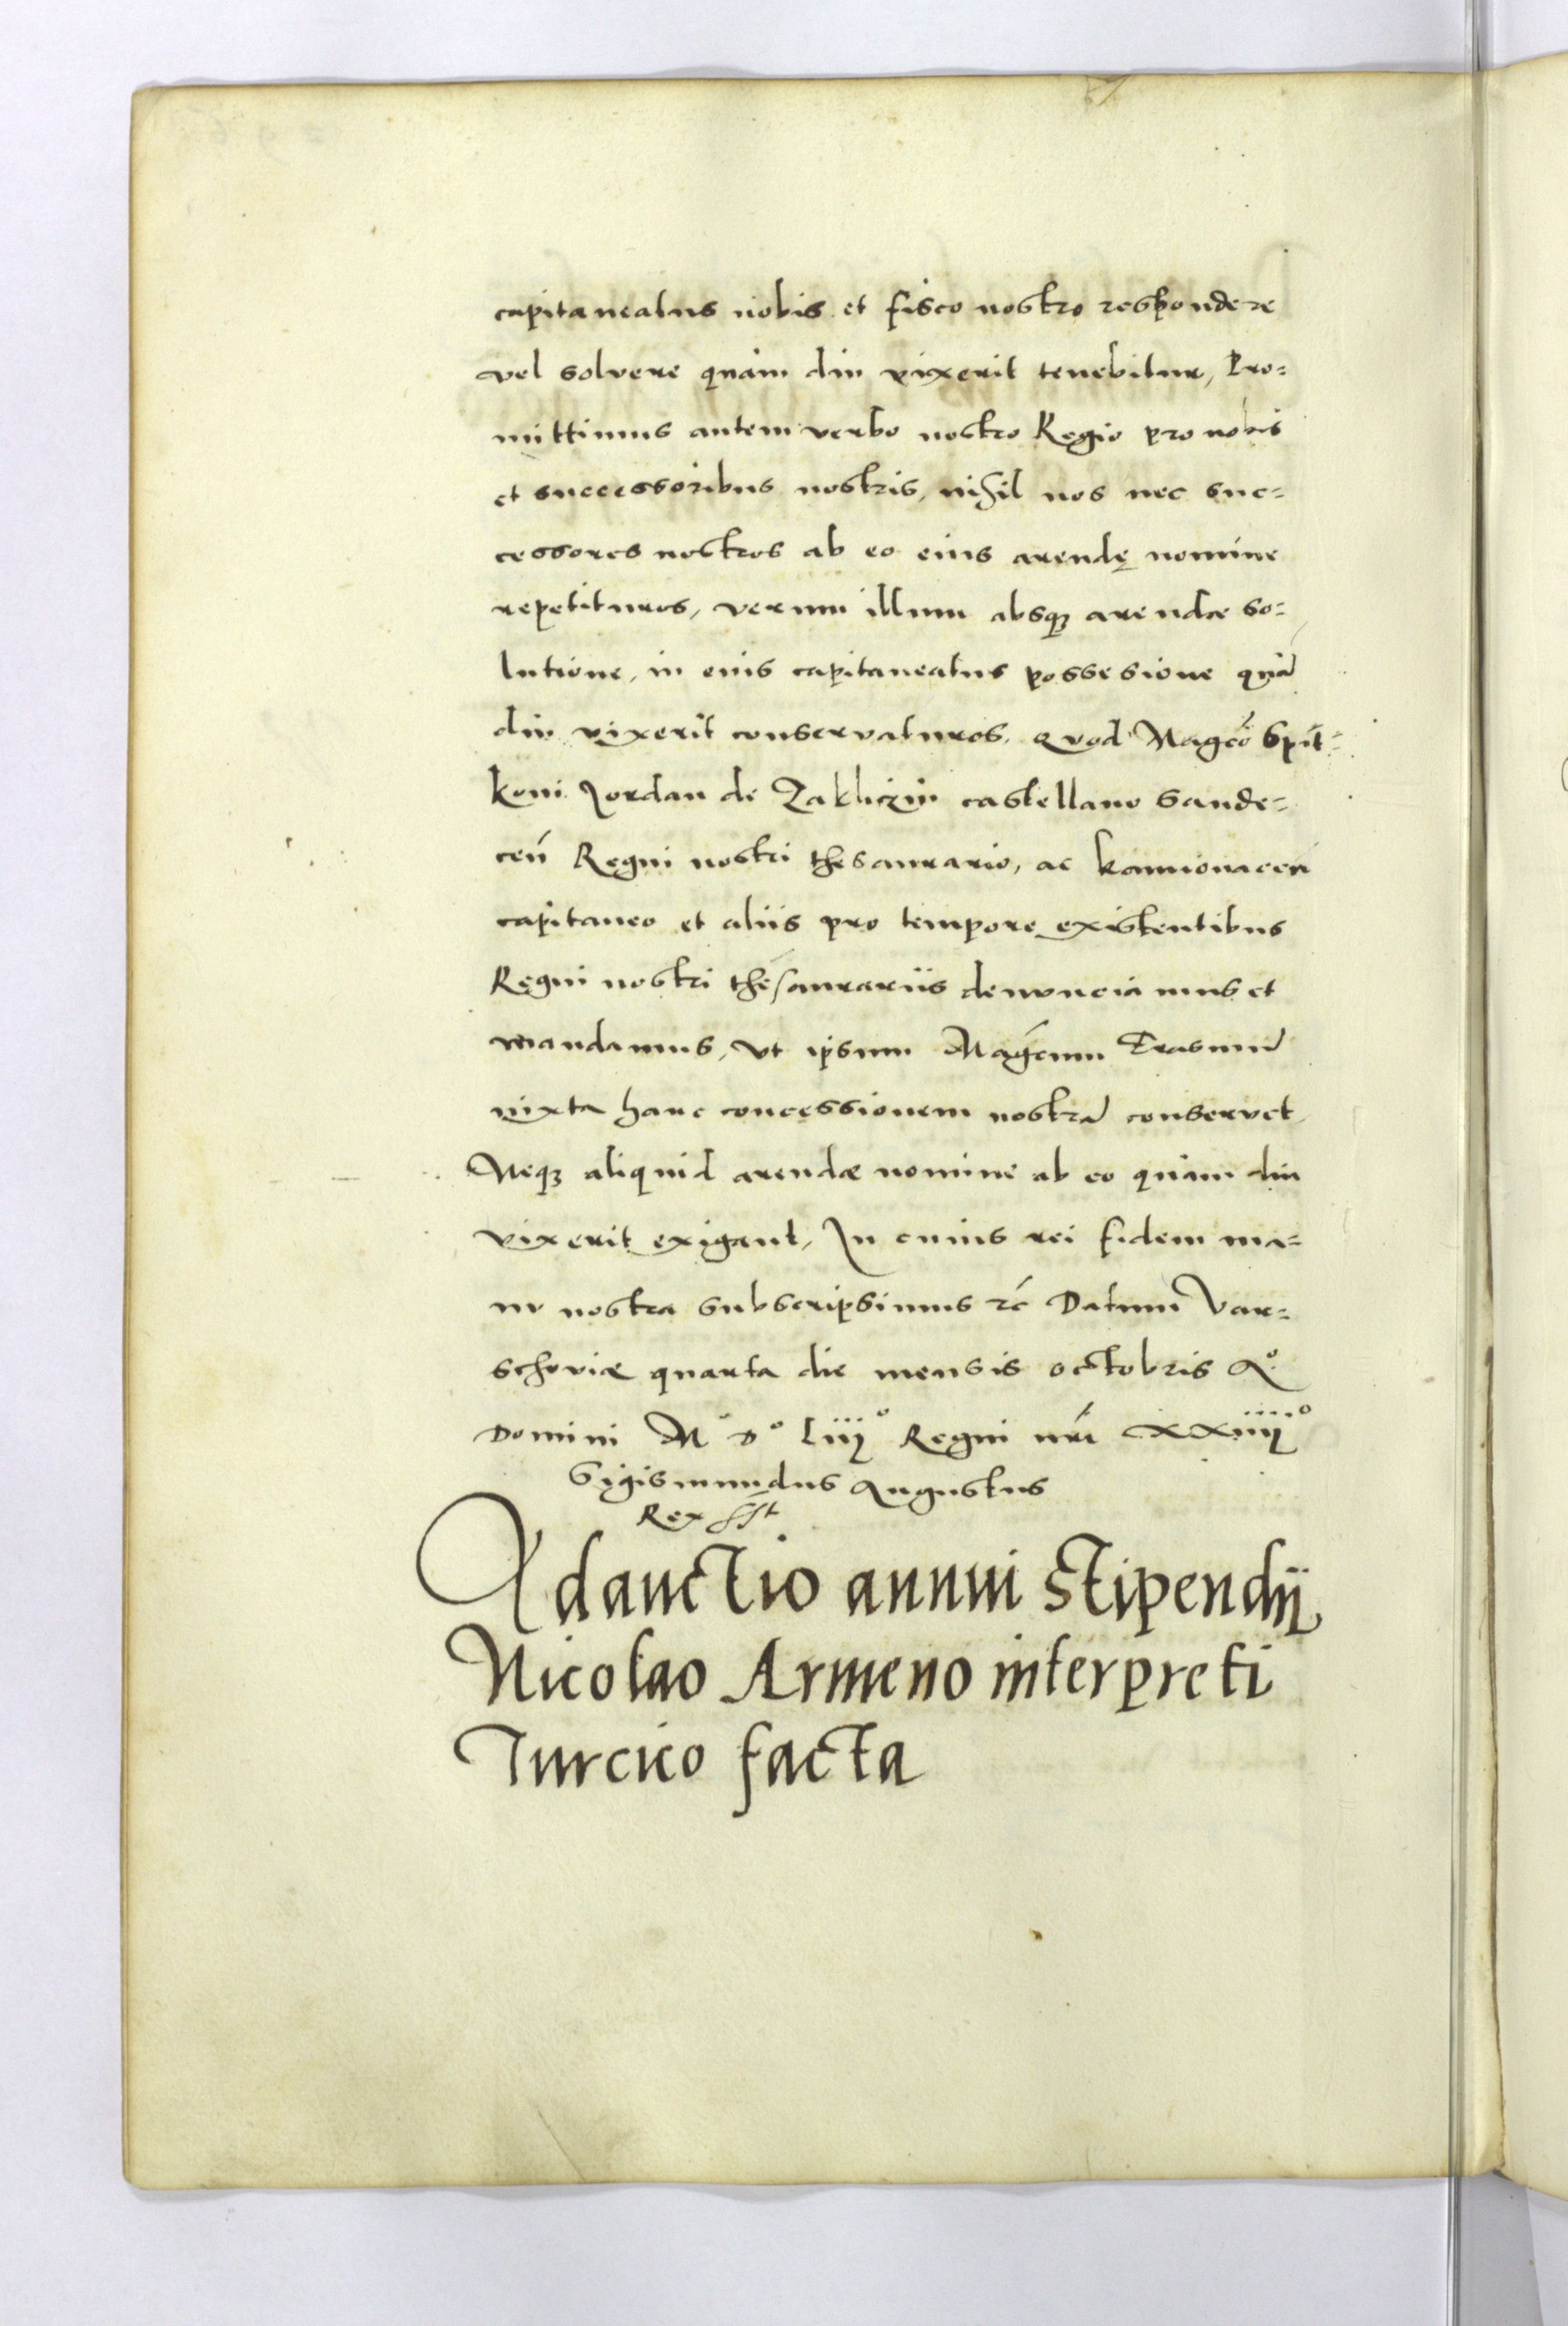 capitaneatus nobis et fisco nostro respondere
vel solvere quàm diu vixerit tenebitur, Pro=
mittimus autem verbo nostro Regio pro nobis
et successoribus nostris, nihil nos nec suc=
cessores nostros ab eo eius arendę nomine
repetituros, verum illum absqꝫ arendæ so=
lutione, in eius capitaneatus possesione quã
diu vixerit conservaturos, Quod Magco Spit=
koni Jordan de Zakliczin castellano Sande=
cen̄ Regni nostri thesaurario, ac kamionacen̄
capitaneo et aliis pro tempore existentibus
Regni nostri thesaurariis denunciamus et
mandamus, vt ipsum Magcum Erasmum̄
iuxta hanc concessionem nostrā conservet
Neqꝫ aliquid arendæ nomine ab eo quàm diu
vixerit exigant, In cuius rei fidem ma=
nu nostra subscripsimus ꝛc Datum Var=
schoviæ quarta die mensis octobris Aº
Domini Mº Dº Liijº Regni nr̃i XXiiijº
Sigismundus Augustus
Rex sst
Adauctio annui stipendij
Nicolao Armeno interpreti
Turcico facta